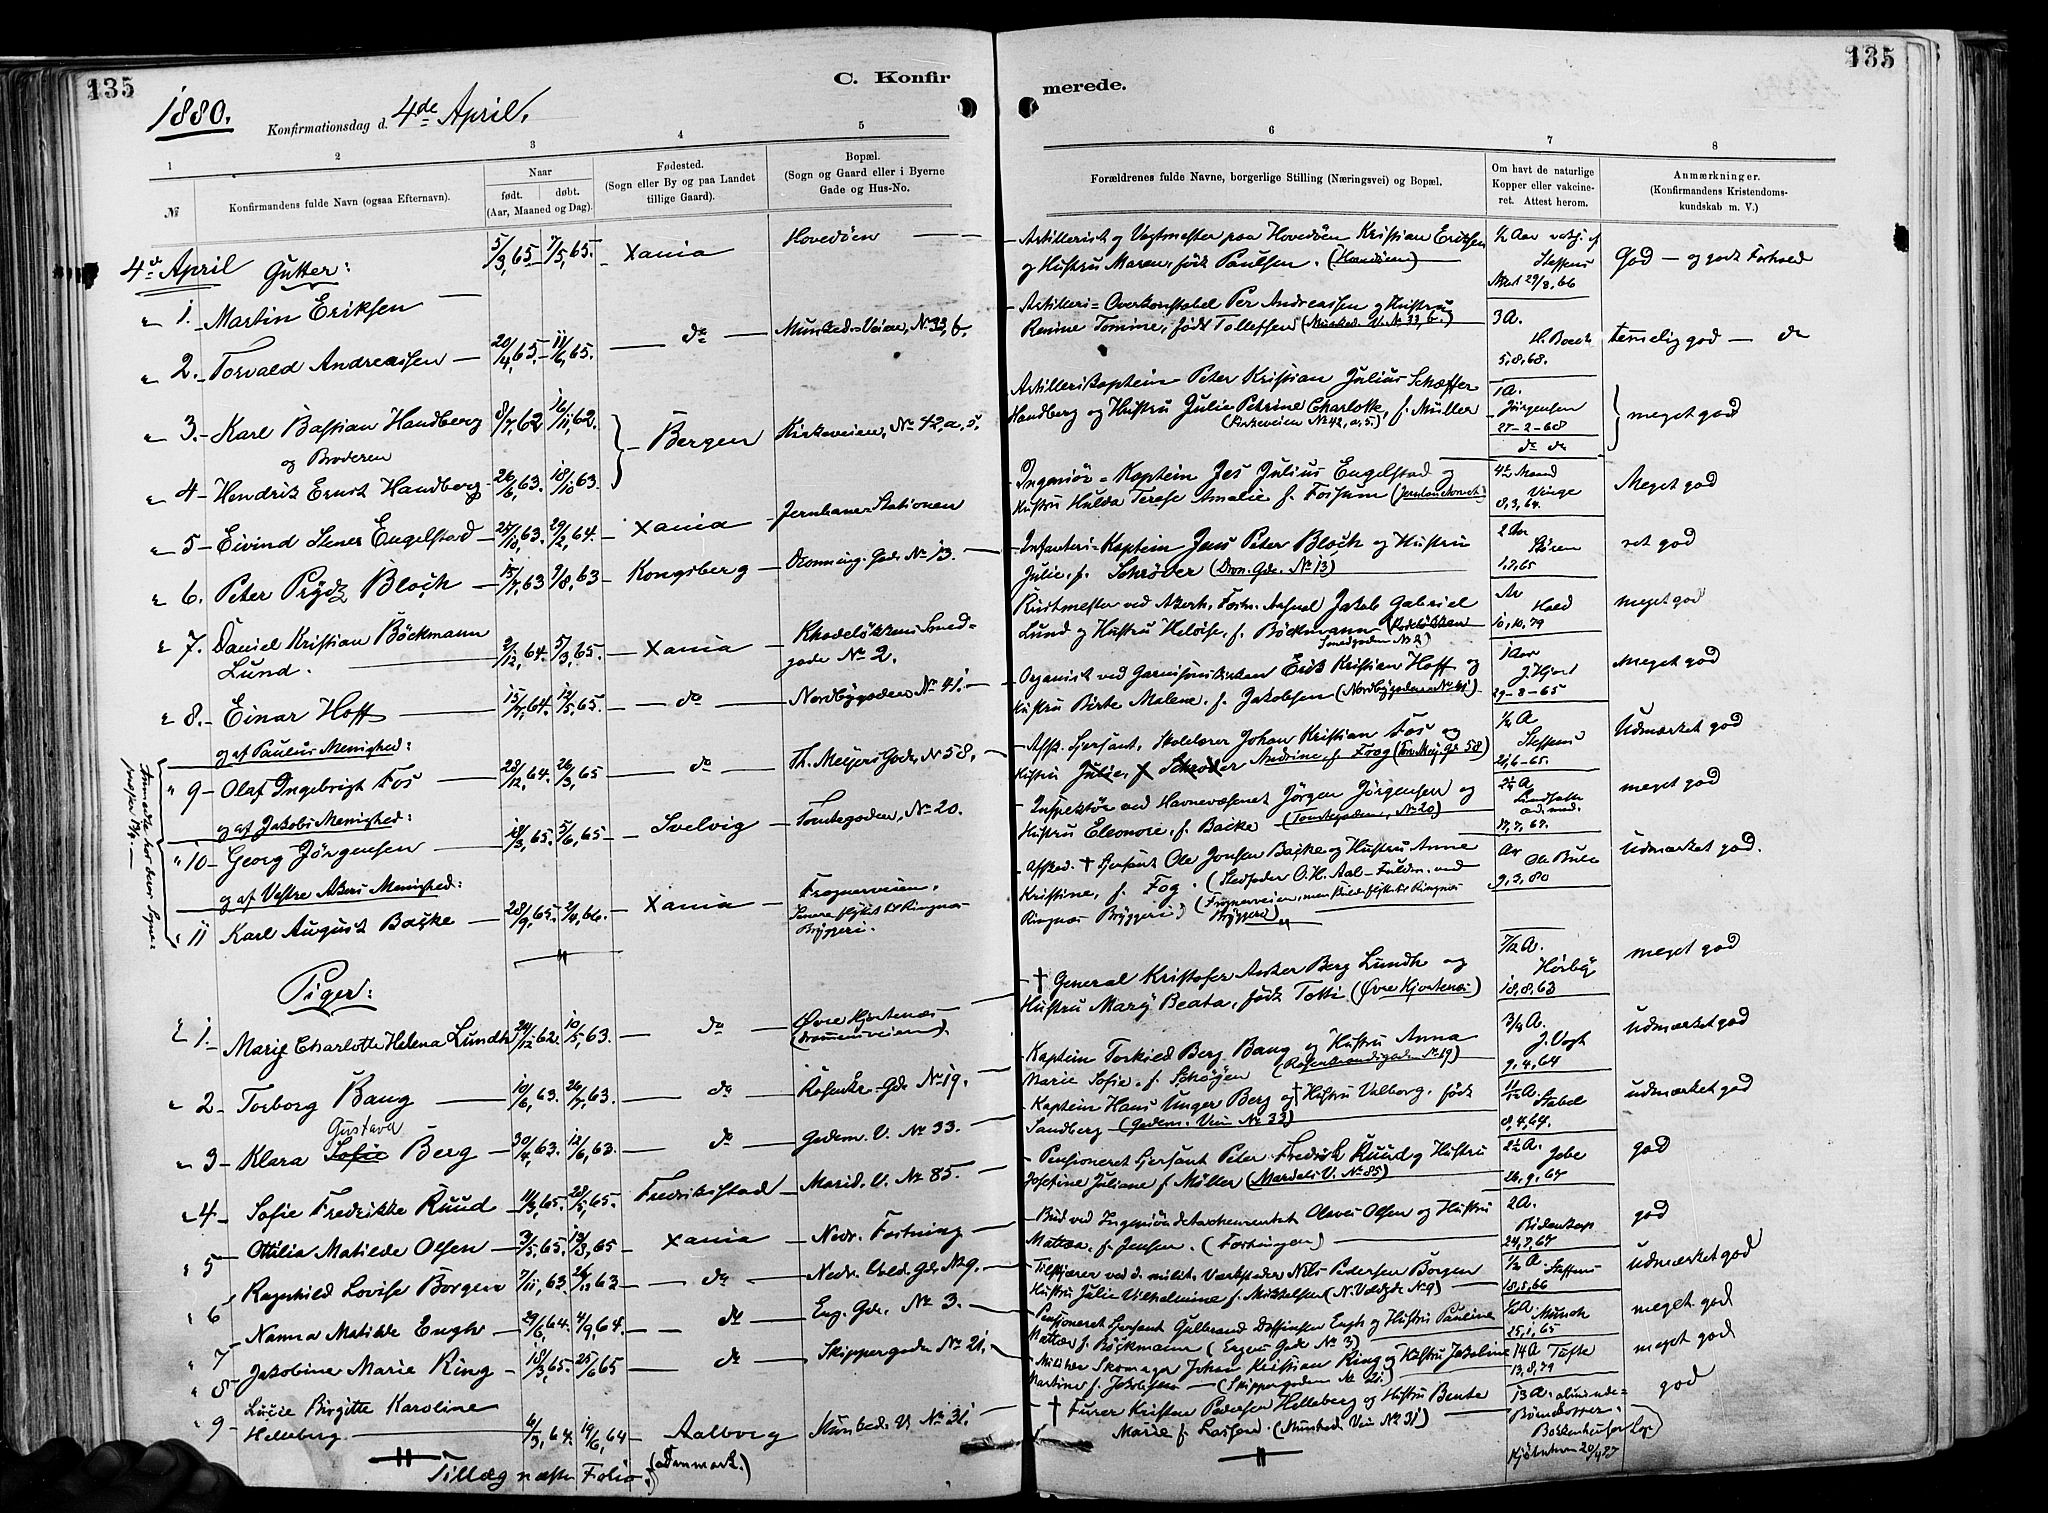 135
135
C. Konfir
merede.
1880.
Konfirmationsdag d. 4de April.
1
2
3
4
5
6
7
8
№
Konfirmandens fulde Navn (ogsaa Efternavn).
Naar
født. døbt.
(Aar, Maaned og Dag).
Fødested.
(Sogn eller By og paa Landet
tillige Gaard).
Bopæl.
(Sogn og Gaard eller i Byerne
Gade og Hus-No.
Forældrenes fulde Navne, borgerlige Stilling (Næringsvei) og Bopæl.
Om havt de naturlige
Kopper eller vakcine-
ret. Attest herom.
Anmærkninger.
(Konfirmandens Kristendoms-
kundskab m. V.)
4de April Gutter:
1. Martin Eriksen 5/3,65 7/5,65. Xania Hovedöen
Artillerist og Vagtmester paa Hovedöen Kristian Eriksen
og Hustru Maren, födt Paulsen. (Hovedöen)
1/2 Aar Steffens Attest 29/8,66 God - og godt Forhold
2. Torvald Andreassen 20/4,65. 11/6,65. do Munkedr. Veien, № 33, b.
Artilleri=Overkonstabel Per Andreassen og Hustru
Renine Tomine, födt Tollefsen (Munked. V. № 33, b.)
3 A. 5,8,68. temelig god - do
3. Karl Bastian Handberg 8/7,62 16/11,62. Bergen Kirkeveien, № 42, a, 5.
og Broderen
Artillerikaptein Peter Kristian Julius Schæffer
Handberg og Hustru Julie Petrine Charlotte, f. Müller
(Kirkeveien № 42, a, 5.)
1 A. Jörgensen 27-2-68 meget god
do do
4 - Hendrik Ernst Handberg 26/6,63. 18/10,63.
5 - Eivind Stener Engelstad 29/2,64. Xania Jernbane-Stationen
Ingeniör=Kaptein Jes Julius Engelstad og
Hustru Hulda Terese Amalie f. Fossum
8,3,64. Meget god
6. Peter Prÿdz Bloch 15/7,63 9/8,63 Kongsberg Dronning. Gde. № 13.
Infanteri-Kaptein Jens Peter Bloch og Hustru
Julie, f. Schröder (Dron. Gde. № 13)
2 Aar Stören ret god
7. Daniel Kristian Böckmann
Lund. 2/12,64. 5/3,65. Xania Rhodelökkens Smed-
gade № 2.
Rustmester ved Akersh. Fortn. Arsenal Jakob Gabriel
Lund og Hustru Heloise, f. Böckmann (Rodelökken
Smedgaden № 2)
10,10,79 meget god
8. Einar Hoff 15/7,64. 14/5,65. do Nordbygaden № 41.
Organist ved Garnisonskirken Erik Kristian Hoff og
Hustru Birte Malene, f. Jakobsen (Nordbygaden № 41)
1 Aar J. Hjort 29-8-65 Meget god
og af Paulus Menighed:
9 - Olaf Ingebrigt Fos 28/12,64. 26/3,65 do Th. Meyers Gade, № 58.
Afsk. Sersant, Skolelærer Johan Kristian Fos og
Hustru Julie, f. Schröder Andrine, f. Foog (Tor. Mey. Gd. 58)
1/2 A Steffens 21,6-65. Udmærket god
og af Jakobs Menighed:
10 - Georg Jörgensen 19/3,65 5/6,65 Svelvig Tomtegaden, № 20.
Inspektör ved Havnevæsenet Jörgen Jörgensen og
Hustru Eleonore, f. Backe (Tomtegaden, № 20)
17,7,67. meget god
og af Vestre Akers Menighed:
11 Karl August Backe 28/9,65. 2/4,66. Xania Frognerveien,
Senere flyttet til Ringnæs
Bryggeri.
Afsked. † Sersant Ole Jonsen Backe og Hustru Anne
Kristine, f. Fog. (Stedfader O. H. Aal-Fuldm. ved
Ringnæs Bryggeri)
Ar Ole Bull 9,3,80 Udmærket god.
Piger:
1. Marie Charlotte Helena Lundh 24/12,62. 10/5,63. do Övre Hjortenæs
(Drammensveien).
† General Kristofer Anker Berg Lundh og
Hustru Mary Beata, födt Tottie (Övre Hjortenæs)
7/12 A. Hörbye 18,8,63 meget god
2 Torborg Bang 10/6,63. 26/7,63. do Rosenkr.-Gde № 19.
Kaptein Torkild Berg Bang og Hustru Anna
Marie Sofie, f. Schöyen (Rosenkrandsgaden № 19)
3/4 A. J. Vogt 9,4,64 udmærket god
3 - Klara Sofie Gustava Berg 30/4,63. 12/6,63. do Gadem. V. № 33.
Kaptein Hans Unger Berg og † Hustru Valborg, födt
Sandberg (Gadem. Vein № 33)
11/12 A. Stabel 8,4,64. udmærket god
4 - Sofie Fredrikke Ruud 11/3,65. 28/5,65 Fredriksstad Marid. V. № 85.
Pensioneret Sersant Peter Fredrik Ruud og Hustru
Josefine Juliane f. Müller (Maridals V. № 85)
2½ A. 26,9,67 god
5 Ottilia Matilde Olsen Xania Nedr. Fæstning
Bud ved Ingeniördetachementet Olaves Olsen og Hustru
Mattea, f. Jensen. (Fæstningen)
2 A. 24,7,67 god
6 Ragnhild Lovise Borgen 7/11,63. 26/12,63 do Nedr. Vold. Gde № 9.
Tilskjærer ved d. milit. Værksteder Nils Pedersen Borgen
Hustru Julie Vilhelmine f. Mikkelsen (N. Voldgde № 9)
½ A. Steffens 18,5,66 udmærket god
7 Nanna Matilde Engh 29/6,64. 4/9,64. do Eng. Gde. № 3.
Pensioneret Sersant Gulbrand Engh og Hustru Pauline
Mattea f. Böckmann (Engen Gade № 3)
Munch 25,1,65 meget god
8 Jakobine Marie Ring 18/3,65. 25/6,65 do Skippergaden № 21.
Militær Skomager Johan Kristian Ring og Hustru Jakobine
Martine f. Jakobsen (Skippergaden № 21.)
14 A Tufte 13,8,79 meget god
9 Lucie Birgitte Karoline
Helleberg 6/3,64. 19/6,64 Aalborg
(Danmark.) Munked. V. № 31.
† Furer Kristen Pedersen Helleberg og Hustru Bente
Marie f. Larsen. (Munked. Vein № 31)
13 A. Kjöbenhavn god
Tillæg næste Folio.